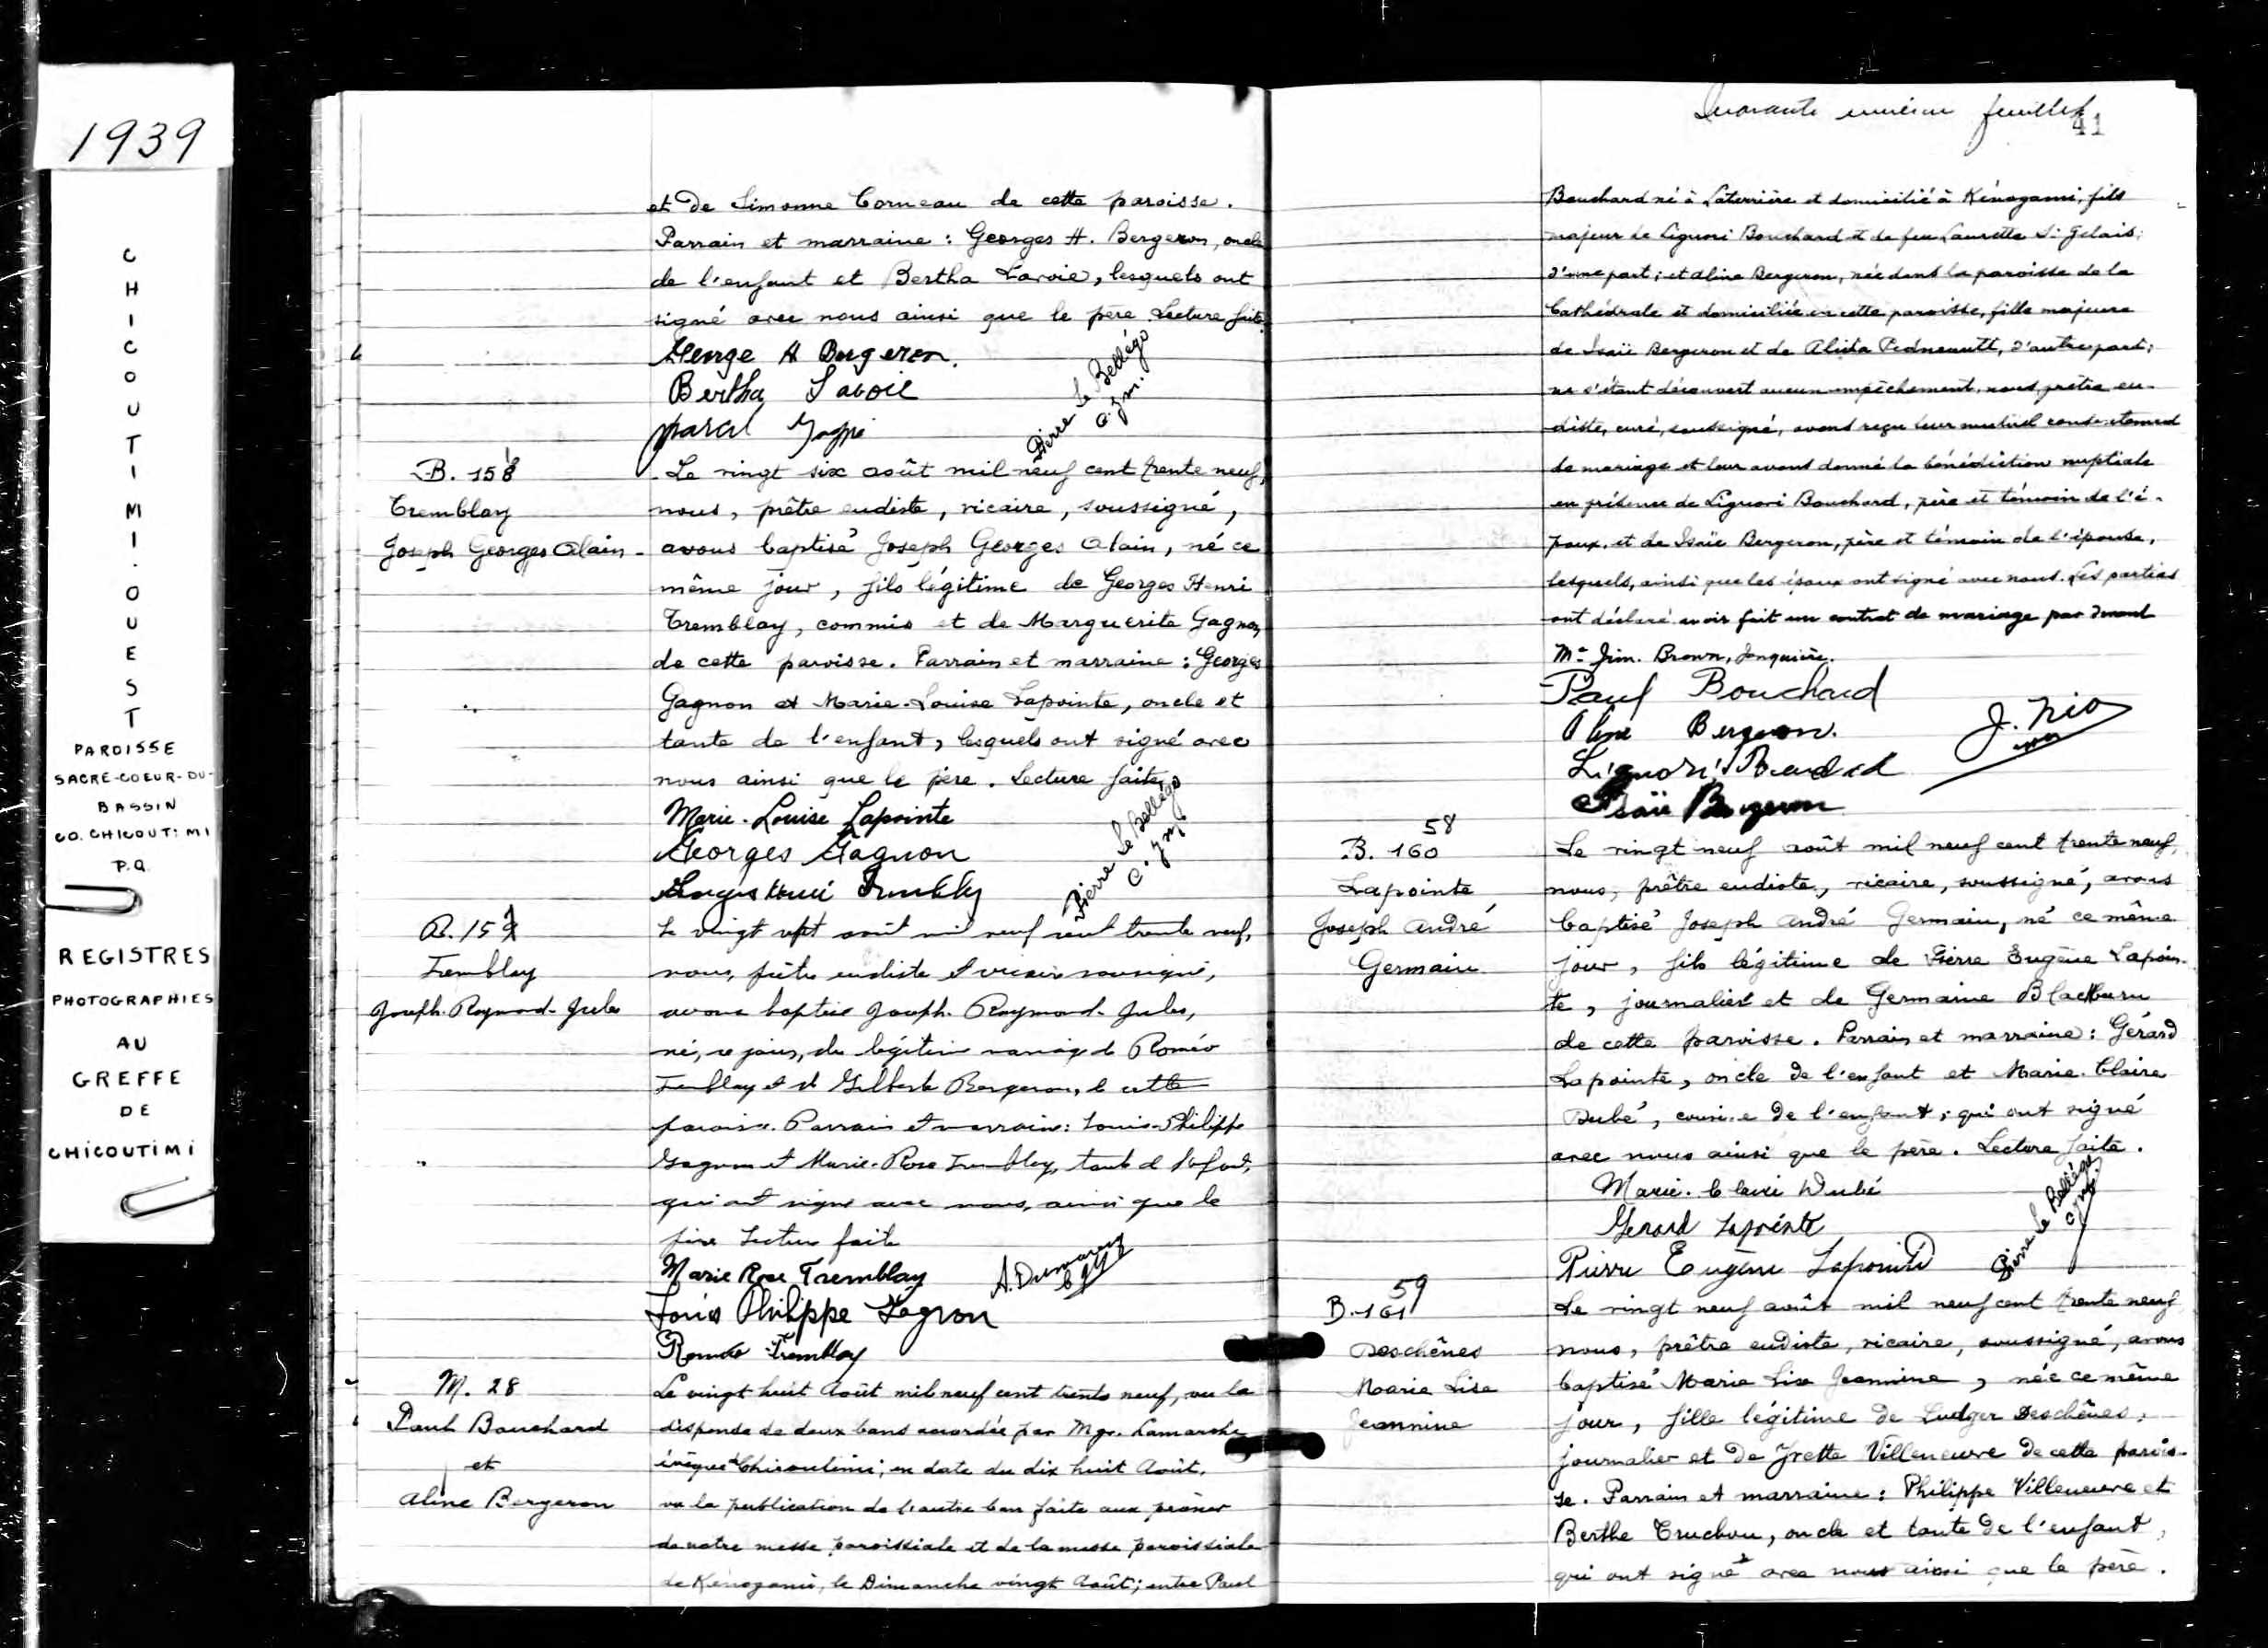 1939
CHICOUTIMI-OUEST
PAROISSE
SACRE-COEUR-DU-
BASSIN
CO. CHICOUTIMI
P.Q.
REGISTRES
PHOTOGRAPHIES
AU
GREFFE
DE
CHICOUTIMI
et de Simonne Corneau de cette paroisse.
Parrain et marraine : Georges H. Bergeron, oncle
de l'enfant et Bertha Lavoie, lesquels ont
signé avec nous ainsi que le père. Lecture faite.
George H Bergeron.
Bertha Lavoie
Pierre le Bellégo
c.j.m.
B. 158
Tremblay
Joseph Georges Alain
Le vingt six août mil neuf cent trente neuf,
nous, prêtre eudiste, vicaire, soussigné,
avons baptisé Joseph Georges Alain, né ce
même jour, fils légitime de Georges Henri
Tremblay, commis et de Marguerite Gagnon
de cette paroisse. Parrain et marraine : Georges
Gagnon et Marie-Louise Lapointe, oncle et
tante de l'enfant, lesquels ont signé avec
nous ainsi que le père. Lecture faite.
Marie-Louise Lapointe
Georges Gagnon
Georges Henri Tremblay
Pierre le Bellégo
c.j.m.
B. 157
Tremblay
Joseph-Raymond-Jules
Le vingt sept août mil neuf cent trente neuf,
nous, prêtre eudiste et vicaire soussigné,
avons baptisé Joseph-Raymond-Jules,
né, ce jour, du légitime mariage de Roméo
Tremblay et de Gilberte Bergeron, de cette
paroisse. Parrain et marraine : Louis-Philippe
Gagnon et Marie-Rose Tremblay, tante de l'enfant,
qui ont signé avec nous, ainsi que le
père Lecture faite
Marie Rose Tremblay
Louis Philippe Gagnon
Roméo Tremblay
M. 28
Paul Bouchard
et
Aline Bergeron
Le vingt huit Août mil neuf cent trente neuf, vu la
dispense de deux bans accordée par Mgr. Lamarche
évêque de Chicoutimi, en date du dix huit Août,
vu la publication de l'autre ban faite aux prônes
de notre messe paroissiale et de la messe paroissiale
de Kénogami, le Dimanche vingt Août ; entre Paul
Quarante unième feuillet
41
Bouchard né à Laterrière et domicilié à Kénogami, fils
majeur de Liguori Bouchard et de feu Laurette St Gelais,
d'une part ; et Aline Bergeron, née dans la paroisse de la
Cathédrale et domiciliée en cette paroisse, fille majeure
de Isaïe Bergeron et de Alida Pedneault, d'autre part ;
ne s'étant découvert aucun empêchement, nous, prêtre eu-
diste, curé, soussigné, avons reçu leur mutuel consentement
de mariage et leur avons donné la bénédiction nuptiale
en présence de Liguori Bouchard, père et témoin de l'é-
poux, et de Isaïe Bergeron, père et témoin de l'épouse,
lesquels, ainsi que les époux ont signé avec nous. Les parties
ont déclaré avoir fait un contrat de mariage par devant
Me Jim. Brown, Jonquière.
Paul Bouchard
Aline Bergeron.
J. Nio
Liguori Bouchard
Isaïe Bergeron
58
B. 160
Lapointe
Joseph André
Germain
Le vingt neuf août mil neuf cent trente neuf,
nous, prêtre eudiste, vicaire, soussigné, avons
baptisé Joseph André Germain, né ce même
jour, fils légitime de Pierre Eugène Lapoin-
te, journalier et de Germaine Blackburn
de cette paroisse. Parrain et marraine : Gérard
Lapointe, oncle de l'enfant et Marie-Claire
Dubé, cousine de l'enfant, qui ont signé
avec nous ainsi que le père. Lecture faite.
Marie-Claire Dubé
Gérard Lapointe
Pierre Eugène Lapointe
Pierre le Bellégo
cjm.
59
B. 161
Deschênes
Marie Lise
Jeannine
Le vingt neuf août mil neuf cent trente neuf
nous, prêtre eudiste, vicaire, soussigné, avons
baptisé Marie Lise Jeannine, née ce même
jour, fille légitime de Ludger Deschênes,
journalier et de Yvette Villeneuve de cette parois-
se. Parrain et marraine : Philippe Villeneuve et
Berthe Truchon, oncle et tante de l'enfant,
qui ont signé avec nous ainsi que le père.